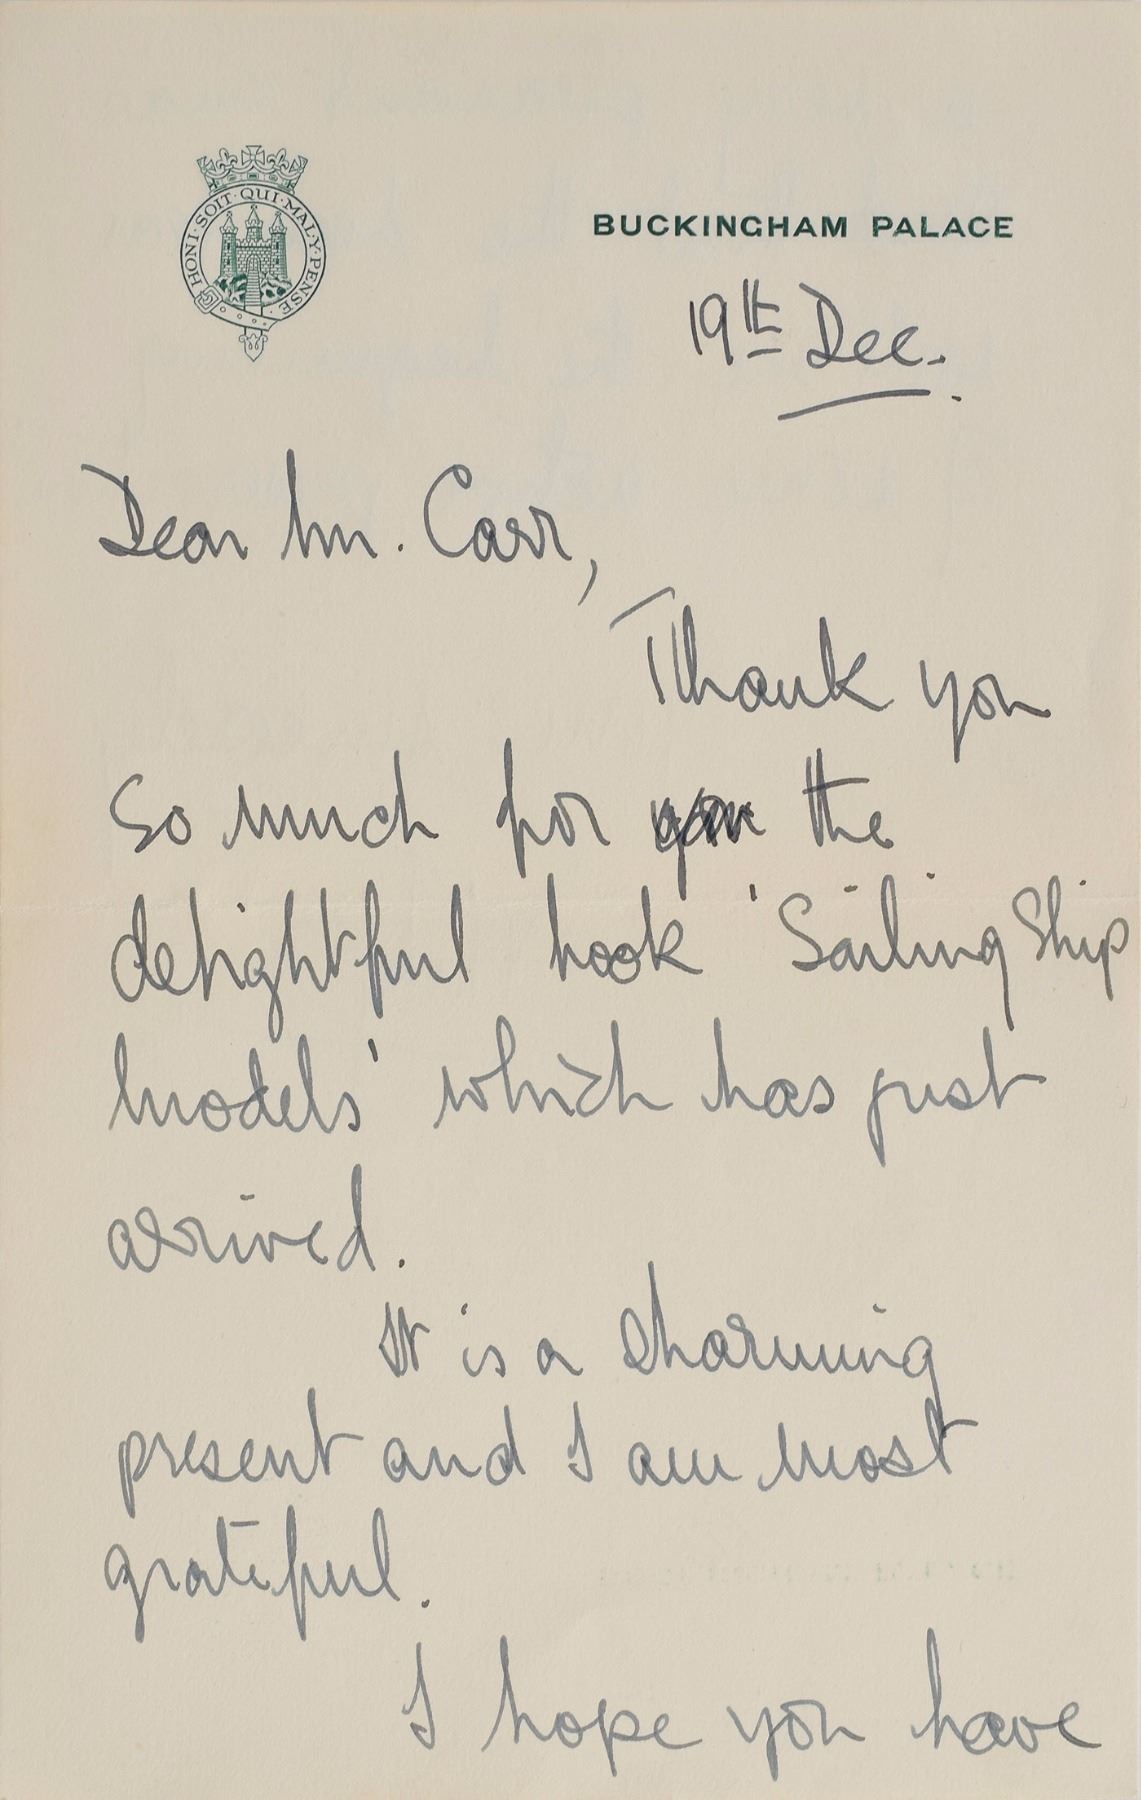 HONI · SOIT · QUI · MAL · Y · PENSE ·
BUCKINGHAM PALACE
19th Dec.
Dear Mr. Carr,
Thank you
so much for the
delightful book 'Sailing Ship
Models' which has just
arrived.
It is a charming
present and I am most
grateful.
I hope you have